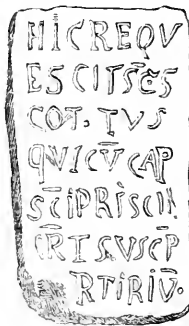 HIC REQV
ESCIT SC̅S
COT·TVS
QVI CV̄ CAP
SC̅I PRISCI
SVSCP̄
RTIRIV̄·